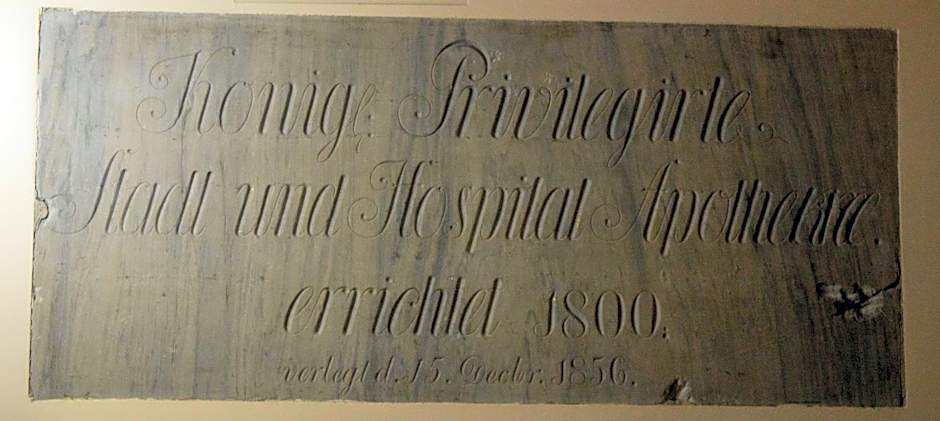 Königl: Privilegirte
Stadt und Hospital Apotheke.
errichtet 1800.
verlegt d. 15. Decbr. 1856.